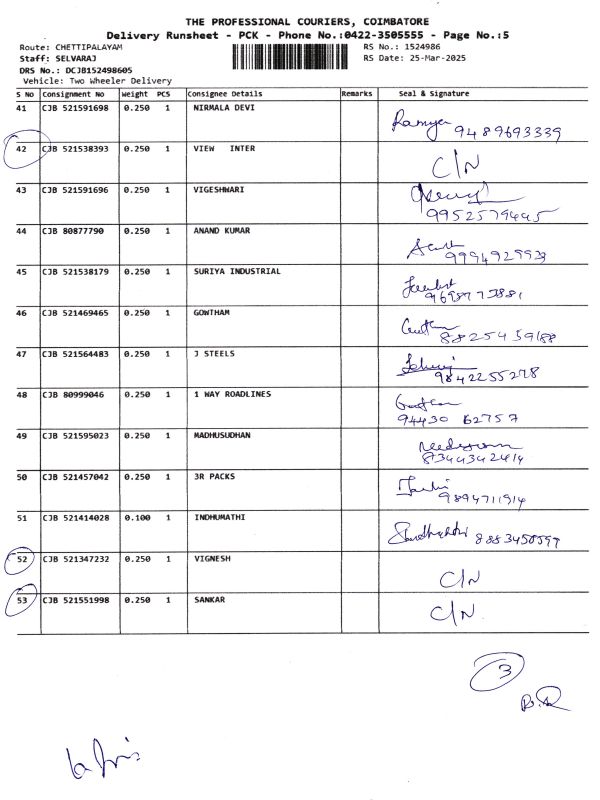 THE PROFESSIONAL COURIERS, COIMBATORE
Delivery Runsheet - PCK - Phone No.:0422-3505555 - Page No.:5
Route: CHETTIPALAYAM RS No.: 1524986
Staff: SELVARAJ RS Date: 25-Mar-2025
DRS No.: DCJB152498605
Vehicle: Two Wheeler Delivery
S No Consignment No Weight PCS Consignee Details Remarks Seal & Signature
41 CJB 521591698 0.250 1 NIRMALA DEVI
Ramya 9489693339
42 CJB 521538393 0.250 1 VIEW INTER
C/N
43 CJB 521591696 0.250 1 VIGESHWARI
9952579445
44 CJB 80877790 0.250 1 ANAND KUMAR
9994929939
45 CJB 521538179 0.250 1 SURIYA INDUSTRIAL
46 CJB 521469465 0.250 1 GOWTHAM
8825439188
47 CJB 521564483 0.250 1 J STEELS
9842255278
48 CJB 80999046 0.250 1 1 WAY ROADLINES
94430 62757
49 CJB 521595023 0.250 1 MADHUSUDHAN
8344342414
50 CJB 521457042 0.250 1 3R PACKS
9894711914
51 CJB 521414028 0.100 1 INDHUMATHI
52 CJB 521347232 0.250 1 VIGNESH
C/N
53 CJB 521551998 0.250 1 SANKAR
C/N
3